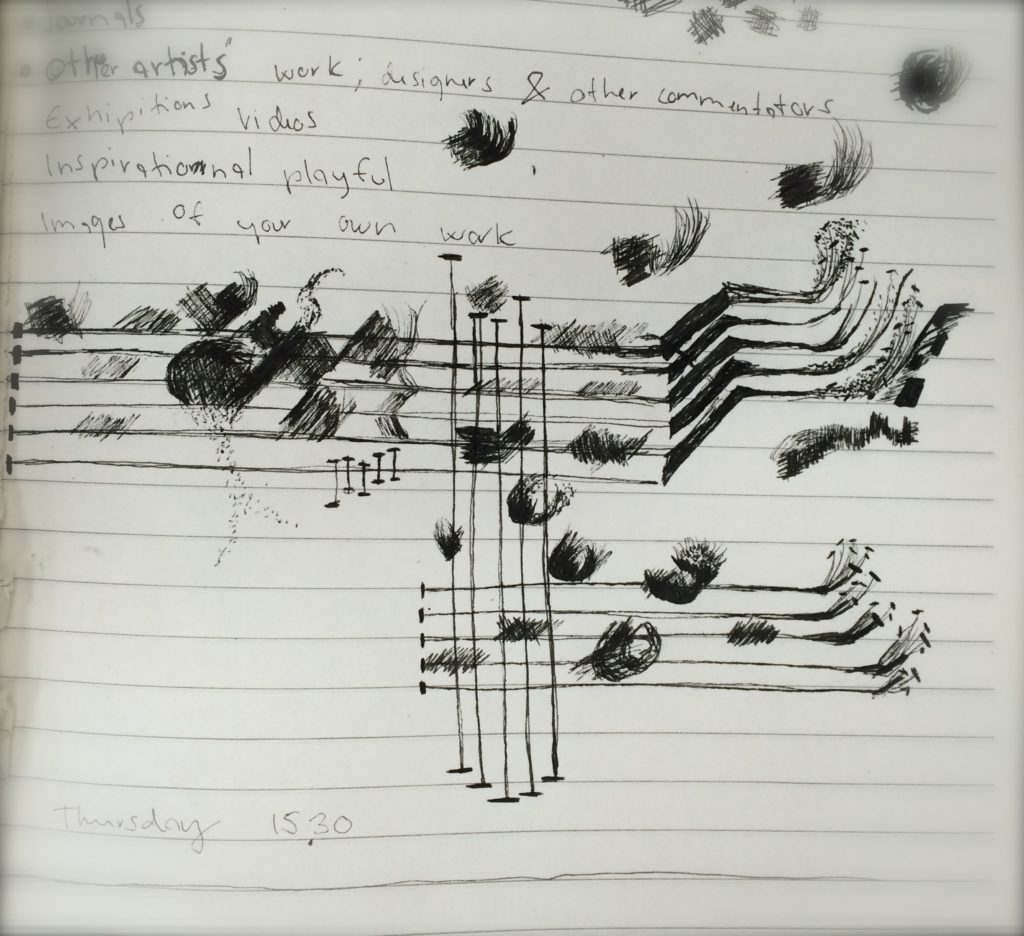 Journals
Other artists' work; designers & other commentators
Exhipitions videos
Inspirationnal playful
Images of your own work
Thursday 15.30